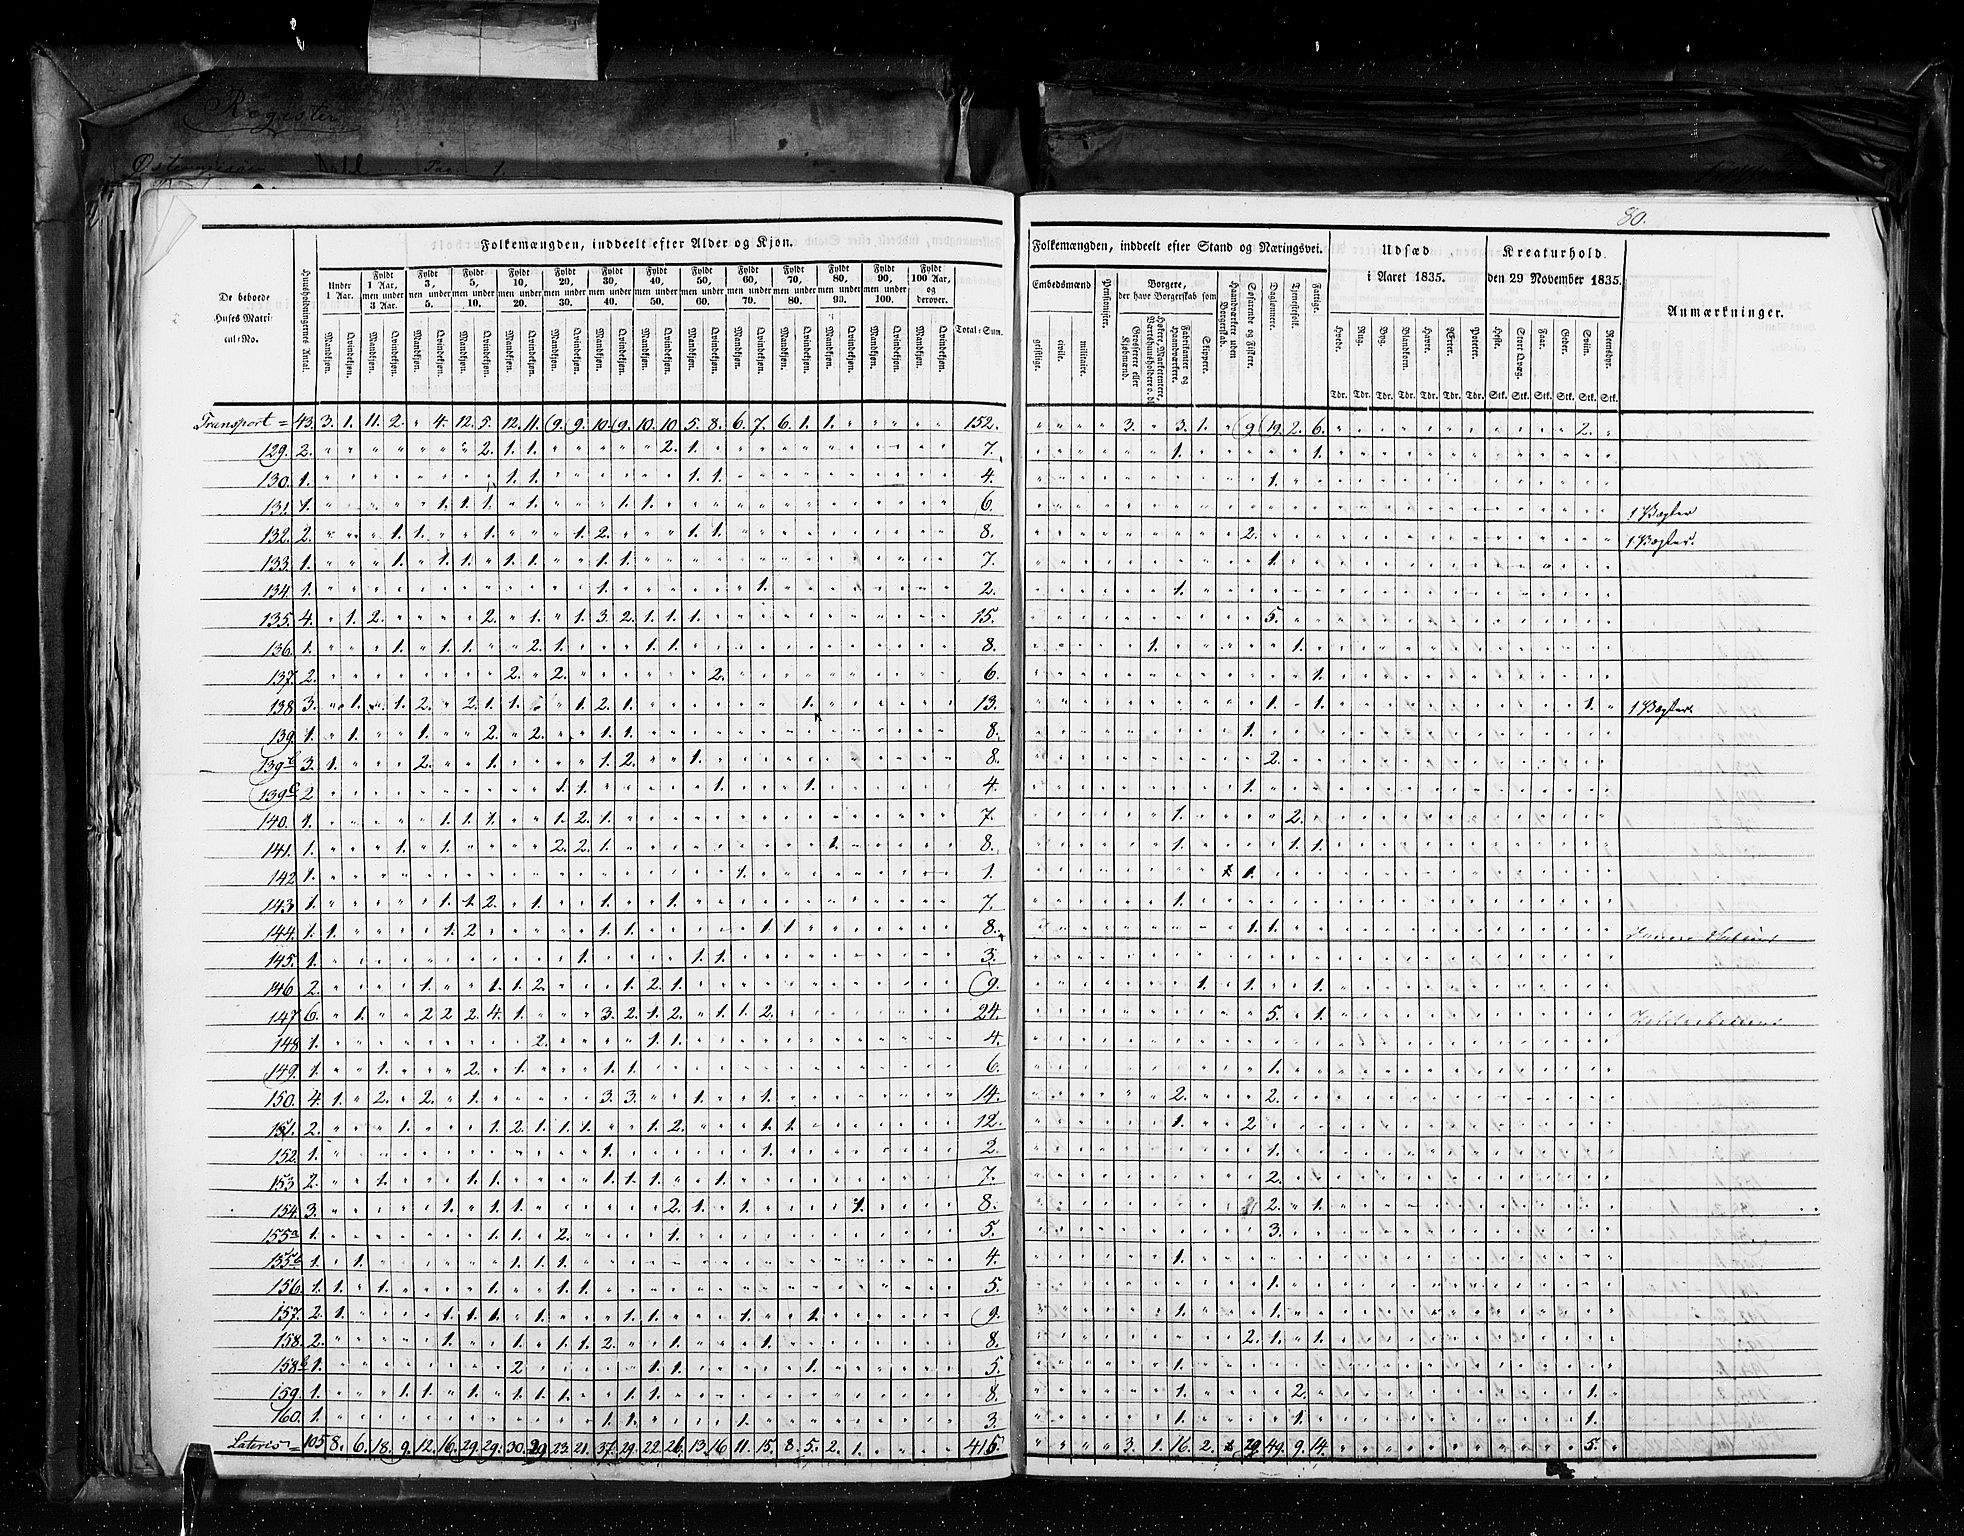 Register
80.
Folkemængden, inddeelt efter Alder og Kjøn.
Folkemængden, inddeelt efter Stand og Næringsvei.
Udsæd i Aaret 1835.
Kreaturhold. den 29 November 1835.
Anmærkninger.
De beboede Huses Matricul-No.
Huusholdningernes Antal.
Under 1 Aar.
Fyldt 1 Aar, men under 3 Aar.
Fyldt 3, men under 5.
Fyldt 5, men under 10.
Fyldt 10, men under 20.
Fyldt 20, men under 30.
Fyldt 30, men under 40.
Fyldt 40, men under 50.
Fyldt 50, men under 60.
Fyldt 60, men under 70.
Fyldt 70, men under 80.
Fyldt 80, men under 90.
Fyldt 90, men under 100.
Fyldt 100 Aar, og derover.
Total-Sum.
Mandkjøn. Qvindekjøn.
Embedsmænd
geistlige. civile. militaire.
Pensionister.
Borgere, der have Borgerskab som
Grosserere eller Kjøbmænd.
Fabrikanter og Haandværkere.
Skippere.
Haandværkere uden Borgerskab.
Søfarende og Fiskere.
Daglønnere.
Tjenestefolk.
Fattige.
Hvede. Rug. Byg. Blandkorn. Havre. Erter. Poteter.
Tdr. Tdr. Tdr. Tdr. Tdr. Tdr. Tdr.
Heste. Stort Qvæg. Faar. Geder. Sviin. Reensdyr.
Stk. Stk. Stk. Stk. Stk. Stk.
Transport = 43. 3. 1. 11. 2. " 4. 12. 5. 12. 11. 9. 9. 10. 9. 10. 10. 5. 8. 6. 7. 6. 1. 1. 152. 3. " 3. 1. " 9 19. 2. 6. 2.
129. 2. 2. 1. 1. 2. 1. 7. 1. 1.
130. 1. 1. 1. 1. 1. 4. 1.
131. 1. 1. 1. 1. 1. 1. 1. 6. 1
132. 2. 1. 1. 1. 1. 2. 1. 1. 8. 2. 1
133. 1. 1. 1. 1. 1. 1. 1. 1. 7. 1.
134. 1. 1. 1. 2. 1.
135. 4. 1. 2. 2. 1. 1. 3. 2. 1. 1. 1. 15. 5.
136. 1. 1. 1. 1. 2. 1. 1. 1. 8. 1. 1.
137. 2. 2. 2. 2. 6. 1.
138. 3. 1. 1. 2. 2. 1. 1. 1. 2. 1. 1. 13. 1. 1. 1. 1
139. 1. 1. 1. 2. 2. 1. 1. 8. 1.
139 b 3. 1. 2. 1. 1. 2. 1. 8. 2.
139 c 2 1. 1. 1. 1. 4. 1.
140. 1. 1. 1. 1. 1. 2. 1. 7. 1. 2.
141. 1. 1. 1. 2. 2. 1. 1. 8. 1. 1. 1.
142 1. 1. 1. 1.
143 1. 1. 1. 2. 1. 1. 1. 7. 1.
144. 1. 1. 1. 2 1. 1. 1. 1. 8. 1. 1.
145. 1. 1. 1. 1. 3.
146 2. 1. 1. 1. 2. 1. 2. 1. 9. 1. 1. 1.
147 6. 1. 2 2 2. 4. 1. 3. 2. 1. 2. 1. 1. 2. 24. 5. 1.
148 1. 2. 1. 1. 4.
149. 1. 1. 2. 1. 1. 1. 6. 1.
150. 4. 1. 2. 2. 1. 3. 3. 1. 1. 14. 2. 2.
151. 2. 1. 1. 2. 1. 1. 1. 1. 2. 1. 1. 12. 1. 2
152. 1. 1. 1. 2. 1.
153 2. 1. 1. 1. 1. 1. 1. 1. 7. 2.
154. 3. 1. 1. 1. 2. 1. 1. 1. 8. 2. 1.
155 a 1. 1. 1. 2. 1. 5. 3.
155 b 1. 1. 1. 1. 1. 4. 1.
156 1. 1. 1. 1. 1. 1. 5. 1.
157. 2. 1. 1. 1. 1. 1. 1. 1. 1. 1. 9. 1. 1.
158. 2. 1. 1. 1. 1. 2. 1. 1. 8. 2. 1. 1.
158 b 1. 2 1. 1. 1. 5. 1.
159. 1. 1. 1. 1. 1. 1. 1. 1. 1. 8. 1. 2. 1.
160. 1. 1. 1. 1. 3. 1. 1. 1.
Lateris = 105 8. 6. 18. 9. 12. 16. 29. 29. 30. 29. 23. 21. 37. 29. 22. 26. 13. 16. 11. 15. 8. 5. 2. 1. 415. 3. 1. 16. 2. 29 49. 9. 14. 5.